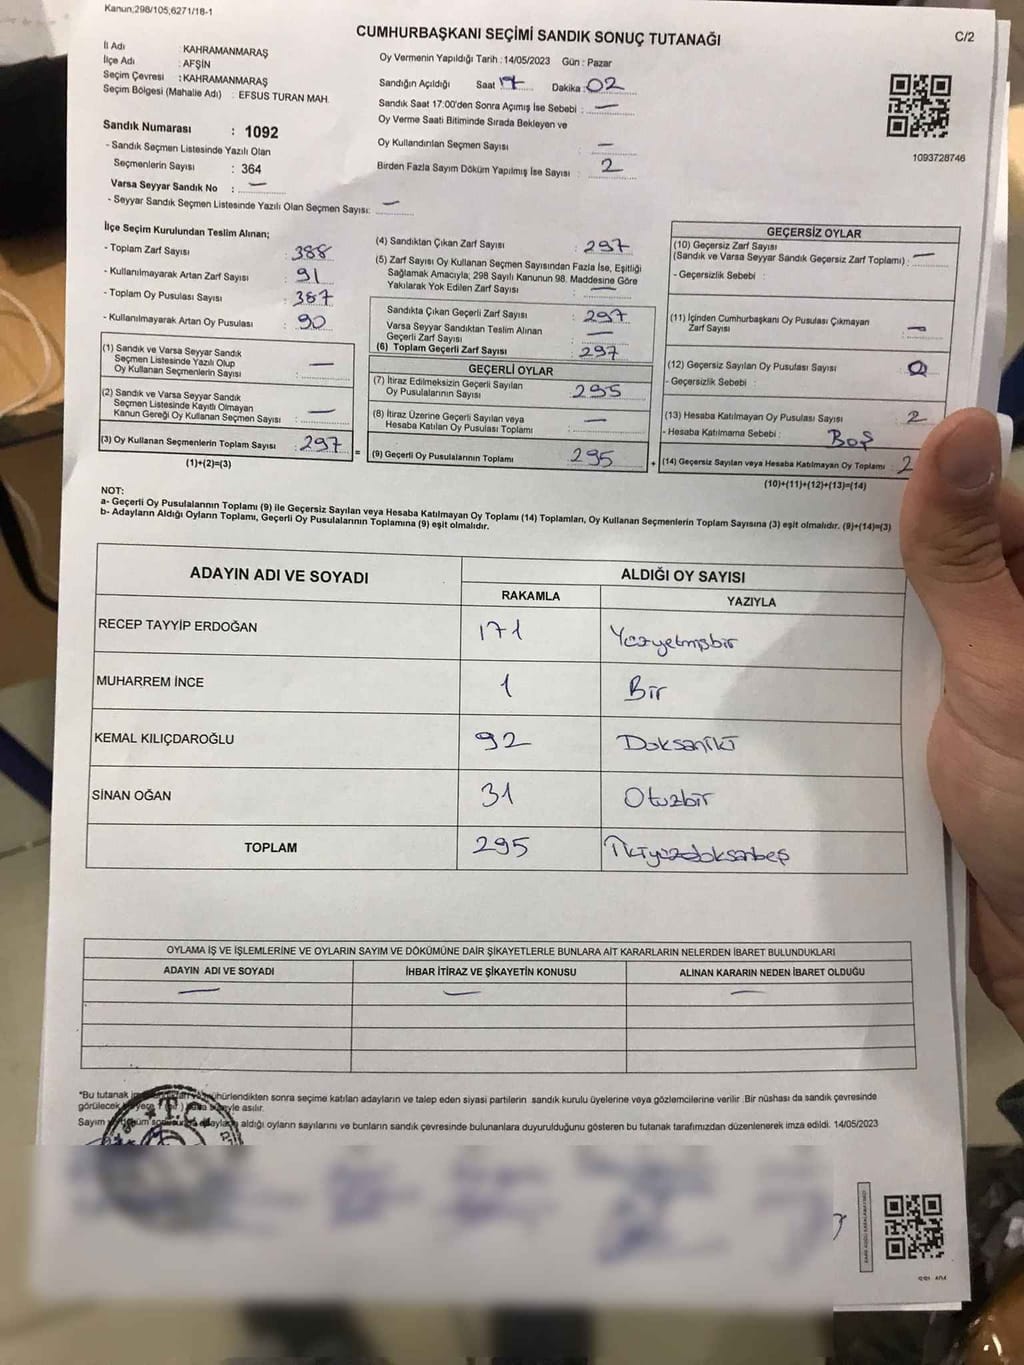 Kanun;298/105,6271/18-1
CUMHURBAŞKANI SEÇİMİ SANDIK SONUÇ TUTANAĞI
C/2
İl Adı : KAHRAMANMARAŞ
İlçe Adı : AFŞİN
Seçim Çevresi : KAHRAMANMARAŞ
Seçim Bölgesi (Mahalle Adı) : EFSUS TURAN MAH.
Sandık Numarası : 1092
- Sandık Seçmen Listesinde Yazılı Olan
Seçmenlerin Sayısı : 364
Varsa Seyyar Sandık No : —
- Seyyar Sandık Seçmen Listesinde Yazılı Olan Seçmen Sayısı: —
Oy Vermenin Yapıldığı Tarih : 14/05/2023 Gün : Pazar
Sandığın Açıldığı Saat 17 Dakika : 02
Sandık Saat 17:00'den Sonra Açımış İse Sebebi : —
Oy Verme Saati Bitiminde Sırada Bekleyen ve
Oy Kullandırılan Seçmen Sayısı : —
Birden Fazla Sayım Döküm Yapılmış İse Sayısı : 2
1093728746
İlçe Seçim Kurulundan Teslim Alınan;
- Toplam Zarf Sayısı : 388
- Kullanılmayarak Artan Zarf Sayısı : 91
- Toplam Oy Pusulası Sayısı : 387
- Kullanılmayarak Artan Oy Pusulası : 90
(1) Sandık ve Varsa Seyyar Sandık
Seçmen Listesinde Yazılı Olup
Oy Kullanan Seçmenlerin Sayısı : —
(2) Sandık ve Varsa Seyyar Sandık
Seçmen Listesinde Kayıtlı Olmayan
Kanun Gereği Oy Kullanan Seçmen Sayısı : —
(3) Oy Kullanan Seçmenlerin Toplam Sayısı : 297
(1)+(2)=(3)
(4) Sandıktan Çıkan Zarf Sayısı : 297
(5) Zarf Sayısı Oy Kullanan Seçmen Sayısından Fazla İse, Eşitliği
Sağlamak Amacıyla; 298 Sayılı Kanunun 98. Maddesine Göre
Yakılarak Yok Edilen Zarf Sayısı : —
Sandıkta Çıkan Geçerli Zarf Sayısı : 297
Varsa Seyyar Sandıktan Teslim Alınan
Geçerli Zarf Sayısı : —
(6) Toplam Geçerli Zarf Sayısı : 297
GEÇERLİ OYLAR
(7) İtiraz Edilmeksizin Geçerli Sayılan
Oy Pusulalarının Sayısı : 295
(8) İtiraz Üzerine Geçerli Sayılan veya
Hesaba Katılan Oy Pusulası Toplamı : —
= (9) Geçerli Oy Pusulalarının Toplamı 295 +
GEÇERSİZ OYLAR
(10) Geçersiz Zarf Sayısı
(Sandık ve Varsa Seyyar Sandık Geçersiz Zarf Toplamı) : —
- Geçersizlik Sebebi :
(11) İçinden Cumhurbaşkanı Oy Pusulası Çıkmayan
Zarf Sayısı : —
(12) Geçersiz Sayılan Oy Pusulası Sayısı : 0
- Geçersizlik Sebebi :
(13) Hesaba Katılmayan Oy Pusulası Sayısı : 2
- Hesaba Katılmama Sebebi : Boş
(14) Geçersiz Sayılan veya Hesaba Katılmayan Oy Toplamı : 2
(10)+(11)+(12)+(13)=(14)
NOT:
a- Geçerli Oy Pusulaları Toplamı (9) ile Geçersiz Sayılan veya Hesaba Katılmayan Oy Toplamı (14) Toplamları, Oy Kullanan Seçmenlerin Toplam Sayısına (3) eşit olmalıdır. (9)+(14)=(3)
b- Adayların Aldığı Oyların Toplamı, Geçerli Oy Pusulalarının Toplamına (9) eşit olmalıdır.
ADAYIN ADI VE SOYADI ALDIĞI OY SAYISI
RAKAMLA YAZIYLA
RECEP TAYYİP ERDOĞAN 171 Yüzyetmişbir
MUHARREM İNCE 1 Bir
KEMAL KILIÇDAROĞLU 92 Doksaniki
SİNAN OĞAN 31 Otuzbir
TOPLAM 295 İkiyüzdoksanbeş
OYLAMA İŞ VE İŞLEMLERİNE VE OYLARIN SAYIM VE DÖKÜMÜNE DAİR ŞİKAYETLERLE BUNLARA AİT KARARLARIN NELERDEN İBARET BULUNDUKLARI
ADAYIN ADI VE SOYADI İHBAR İTİRAZ VE ŞİKAYETİN KONUSU ALINAN KARARIN NEDEN İBARET OLDUĞU
— — —
*Bu tutanak mühürlendikten sonra seçime katılan adayların ve talep eden siyasi partilerin sandık kurulu üyelerine veya gözlemcilerine verilir .Bir nüshası da sandık çevresinde
görülecek süreyle asılır.
Sayım aldığı oyların sayılarını ve bunların sandık çevresinde bulunanlara duyurulduğunu gösteren bu tutanak tarafımızdan düzenlenerek imza edildi. 14/05/2023
T.C.